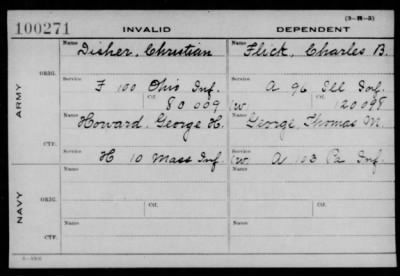 (3-28-3)
100271 INVALID DEPENDENT
Name Disher, Christian Name Flick, Charles B.
ARMY
ORIG.
Service F 100 Ohio Inf. Service A 96 Ill Inf.
Ctf. 80009 (W. Ctf. 120098
Name Howard, George H. Name George, Thomas M.
CTF.
Service H 10 Mass Inf. Service (W. A 103 Pa Inf.
NAVY
Name Name
ORIG. Ctf. Ctf.
Name Name
CTF.